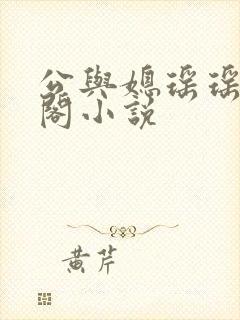 公與媳瑤瑤
閣小說
黃芹